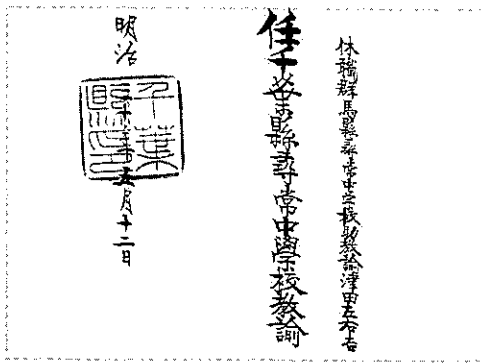 休職群馬縣尋常中学校助教諭津田左右吉
任千葉縣尋常中學校教諭
明治 年五月十二日
千葉
縣印